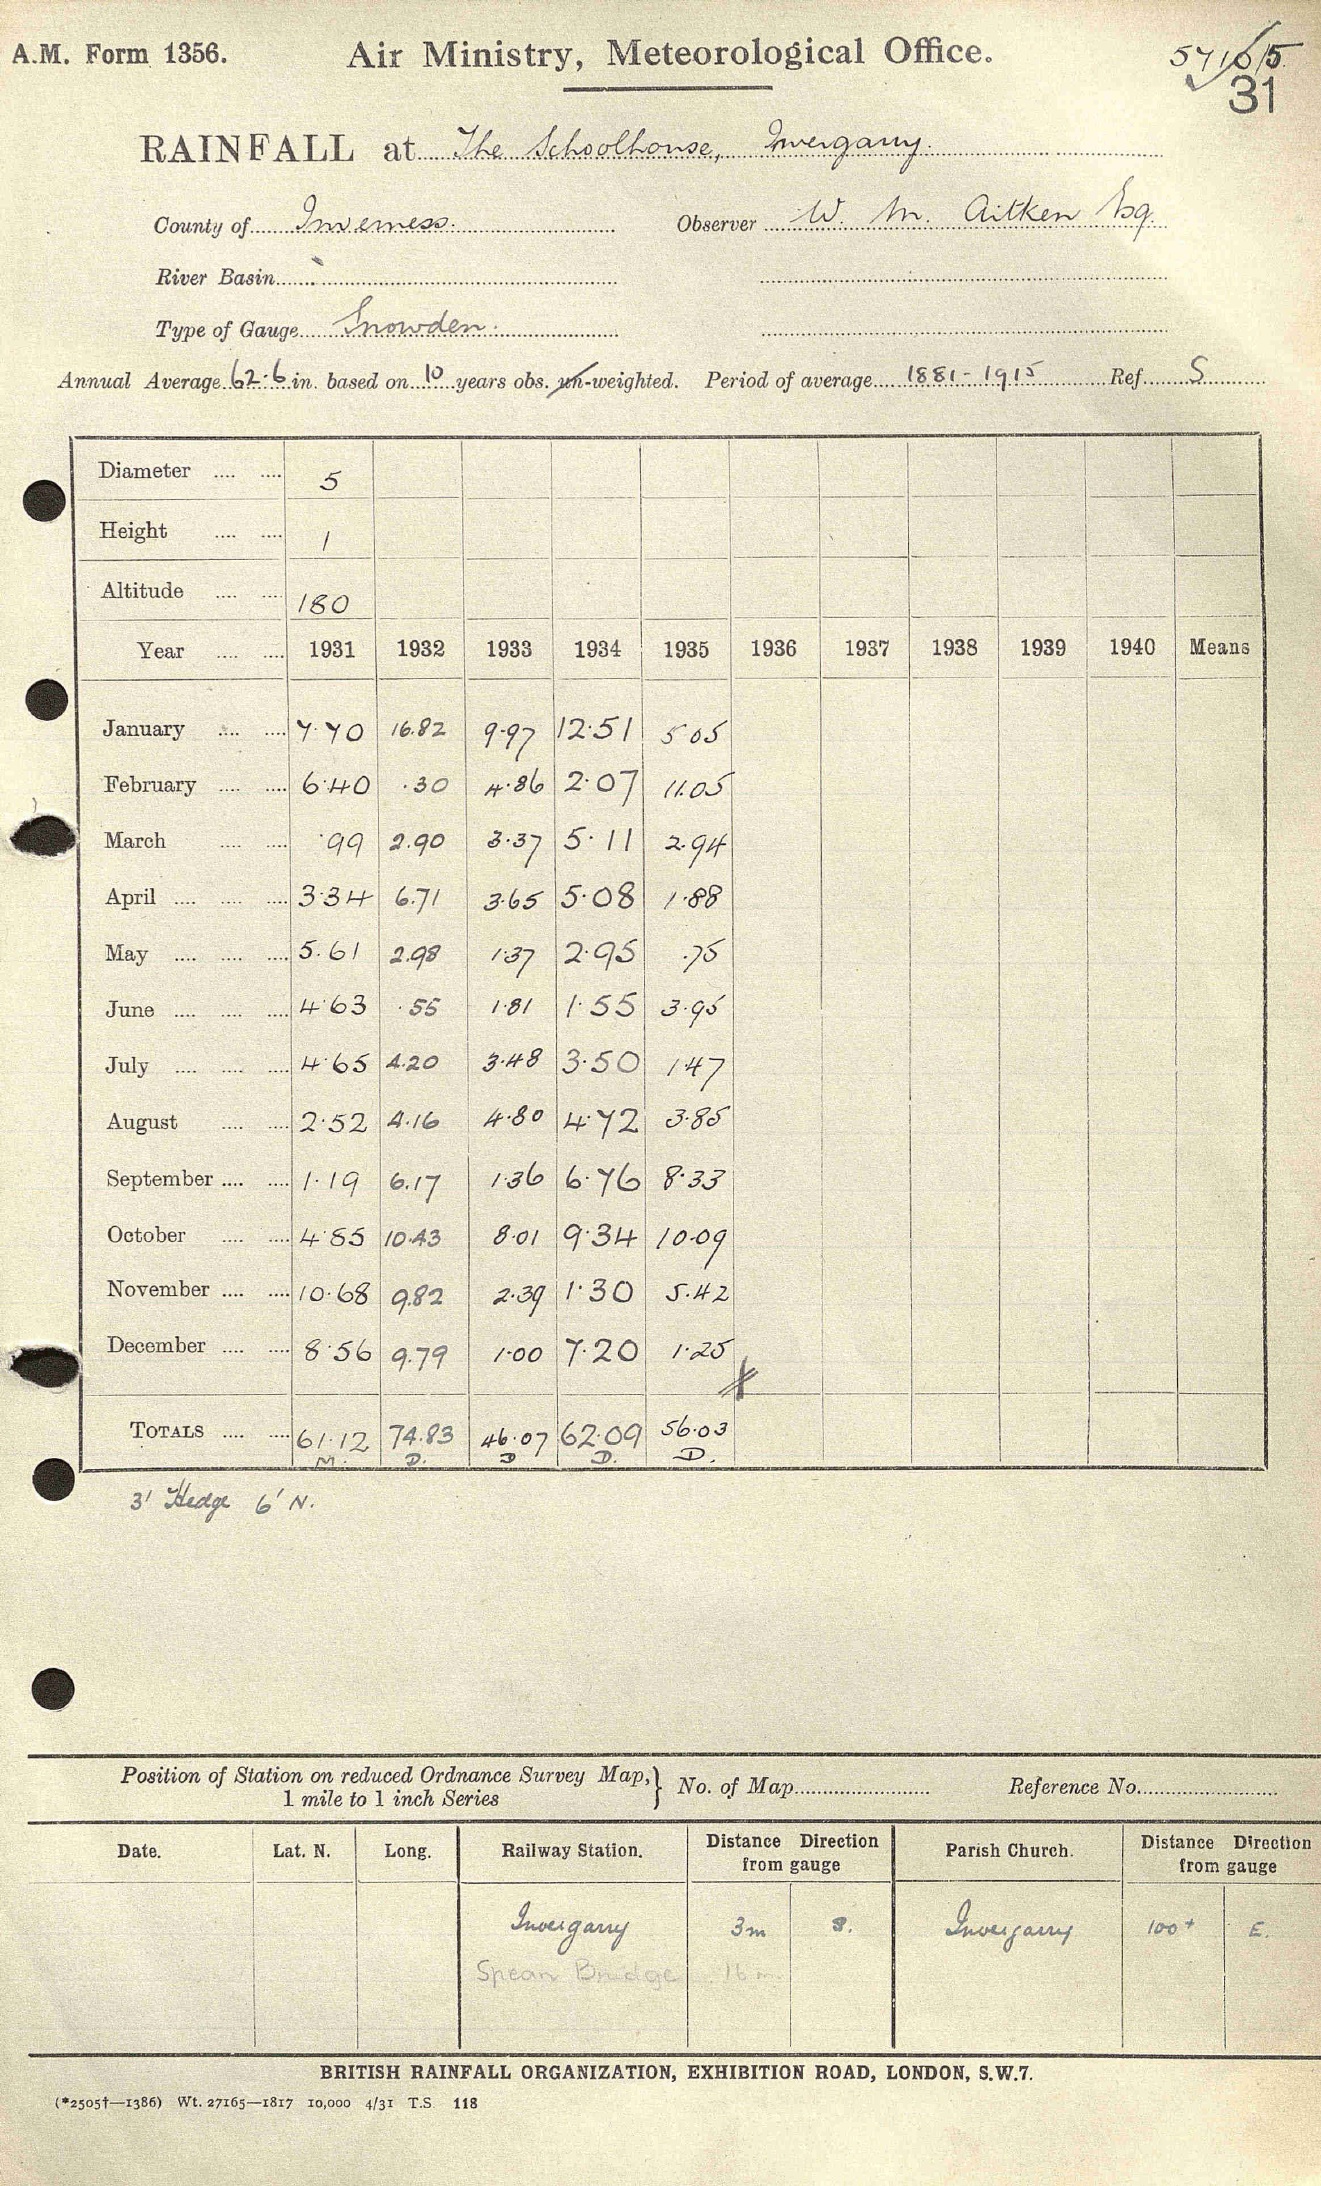 A.M. Form 1356. Air Ministry, Meteorological Office.
31
RAINFALL at The Schoolhouse, Invergarry.
County of Inverness. Observer W. M. Aitken Esq.
River Basin
Type of Gauge Snowden.
Annual Average 62.6 in. based on 10 years obs. un-weighted. Period of average 1881-1915 Ref S
Diameter 5
Height 1
Altitude 180
Year 1931 1932 1933 1934 1935 1936 1937 1938 1939 1940 Means
January 7.70 16.82 9.97 12.51 5.05
February 6.40 .30 4.86 2.07 11.05
March .99 2.90 3.37 5.11 2.94
April 3.34 6.71 3.65 5.08 1.88
May 5.61 2.98 1.37 2.95 .75
June 4.63 .55 1.81 1.55 3.95
July 4.65 4.20 3.48 3.50 1.47
August 2.52 4.16 4.80 4.72 3.85
September 1.19 6.17 1.36 6.76 8.33
October 4.85 10.43 8.01 9.34 10.09
November 10.68 9.82 2.39 1.30 5.42
December 8.56 9.79 1.00 7.20 1.25
TOTALS 61.12 74.83 46.07 62.09 56.03
M. D. D D. D.
3' Hedge 6' N.
Position of Station on reduced Ordnance Survey Map, } No. of Map Reference No.
1 mile to 1 inch Series
Date. Lat. N. Long. Railway Station. Distance Direction from gauge Parish Church. Distance Direction from gauge
Invergarry 3m S. Invergarry 100+ E.
Spean Bridge 16 m
BRITISH RAINFALL ORGANIZATION, EXHIBITION ROAD, LONDON, S.W.7.
(*2505†—1386) Wt. 27165—1817 10,000 4/31 T.S. 118